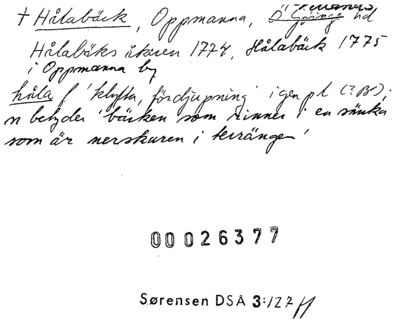 † Hålabäck, Oppmanna, Ö Göinge hd
Hålabäks åkren 1774, Hålabäck 1775
i Oppmanna by
håla f 'klyfta, fördjupning' i gen pl (?Bv);
n betyder 'bäcken som rinner i en sänka
som är nerskuren i terrängen'
00026377
Sørensen DSA 3:127